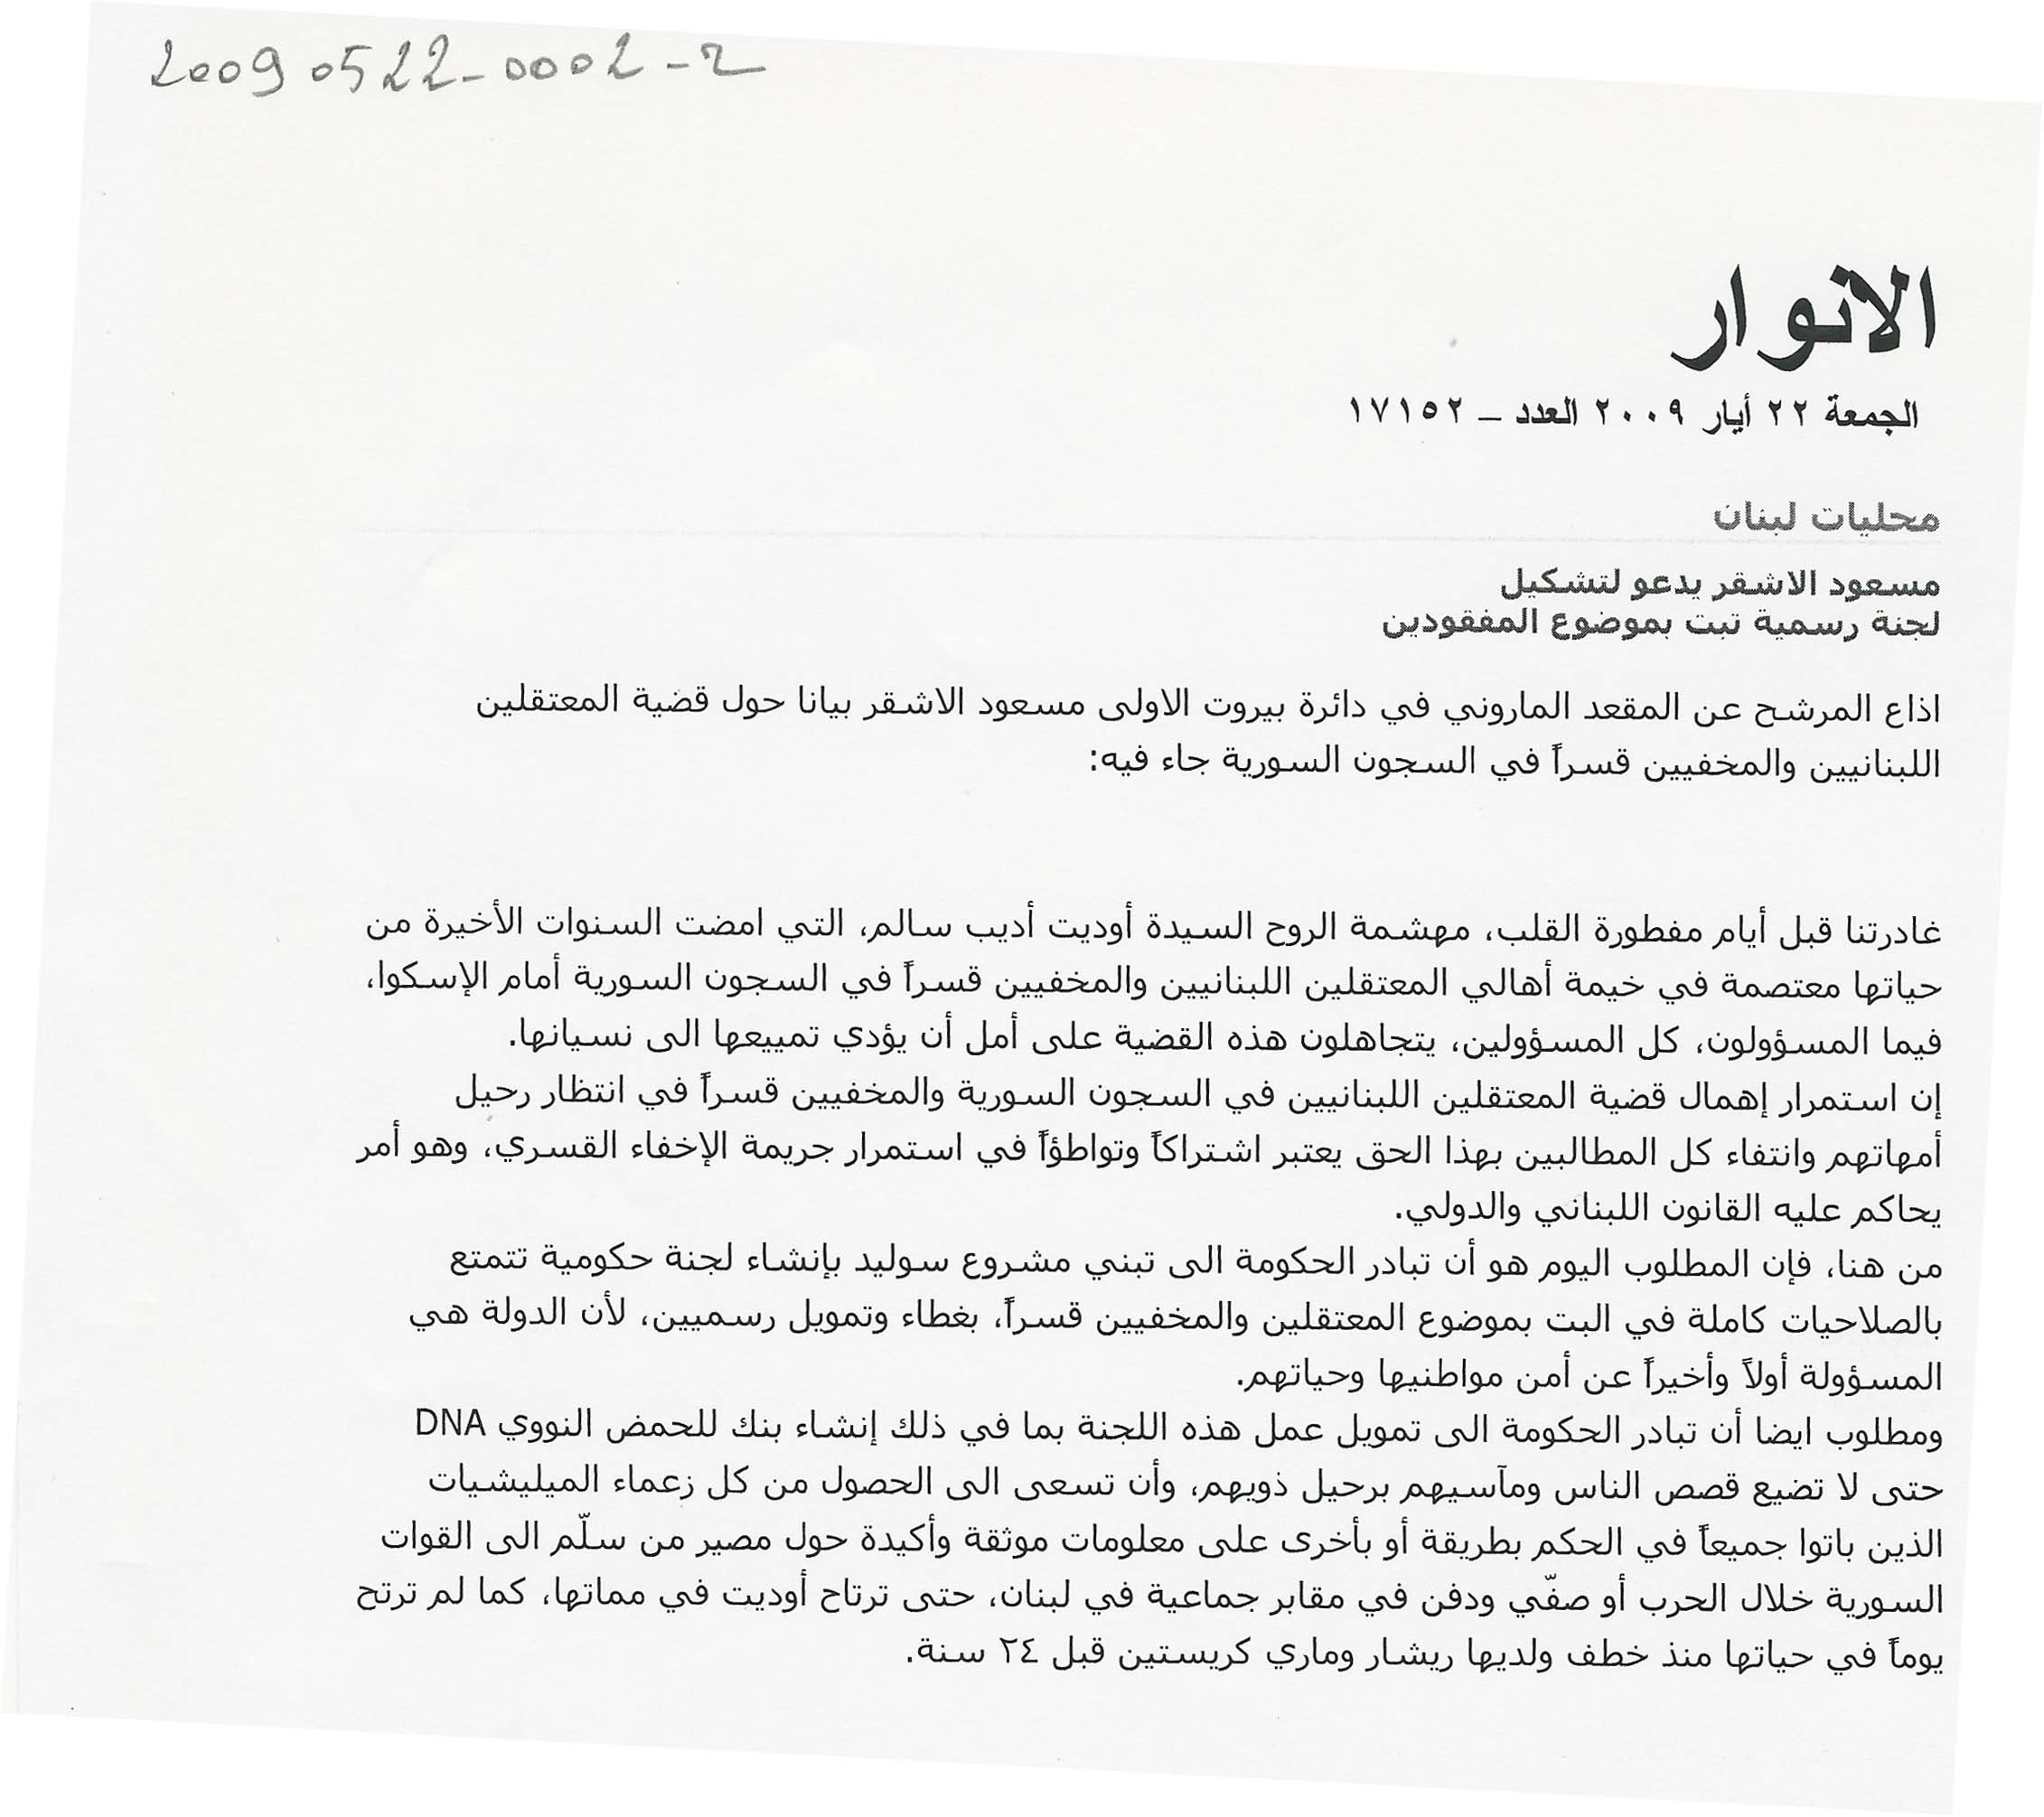 20090522-0002-2
الانوار
الجمعة ٢٢ أيار ٢٠٠٩ العدد – ١٧١٥٢
محليات لبنان
مسعود الاشقر يدعو لتشكيل
لجنة رسمية تبت بموضوع المفقودين
اذاع المرشح عن المقعد الماروني في دائرة بيروت الاولى مسعود الاشقر بيانا حول قضية المعتقلين
اللبنانيين والمخفيين قسراً في السجون السورية جاء فيه:
غادرتنا قبل أيام مفطورة القلب، مهشمة الروح السيدة أوديت أديب سالم، التي امضت السنوات الأخيرة من
حياتها معتصمة في خيمة أهالي المعتقلين اللبنانيين والمخفيين قسراً في السجون السورية أمام الإسكوا،
فيما المسؤولون، كل المسؤولين، يتجاهلون هذه القضية على أمل أن يؤدي تمييعها الى نسيانها.
إن استمرار إهمال قضية المعتقلين اللبنانيين في السجون السورية والمخفيين قسراً في انتظار رحيل
أمهاتهم وانتفاء كل المطالبين بهذا الحق يعتبر اشتراكاً وتواطؤاً في استمرار جريمة الإخفاء القسري، وهو أمر
يحاكم عليه القانون اللبناني والدولي.
من هنا، فإن المطلوب اليوم هو أن تبادر الحكومة الى تبني مشروع سوليد بإنشاء لجنة حكومية تتمتع
بالصلاحيات كاملة في البت بموضوع المعتقلين والمخفيين قسراً، بغطاء وتمويل رسميين، لأن الدولة هي
المسؤولة أولاً وأخيراً عن أمن مواطنيها وحياتهم.
ومطلوب ايضا أن تبادر الحكومة الى تمويل عمل هذه اللجنة بما في ذلك إنشاء بنك للحمض النووي DNA
حتى لا تضيع قصص الناس ومآسيهم برحيل ذويهم، وأن تسعى الى الحصول من كل زعماء الميليشيات
الذين باتوا جميعاً في الحكم بطريقة أو بأخرى على معلومات موثقة وأكيدة حول مصير من سلّم الى القوات
السورية خلال الحرب أو صفّي ودفن في مقابر جماعية في لبنان، حتى ترتاح أوديت في مماتها، كما لم ترتح
يوماً في حياتها منذ خطف ولديها ريشار وماري كريستين قبل ٢٤ سنة.